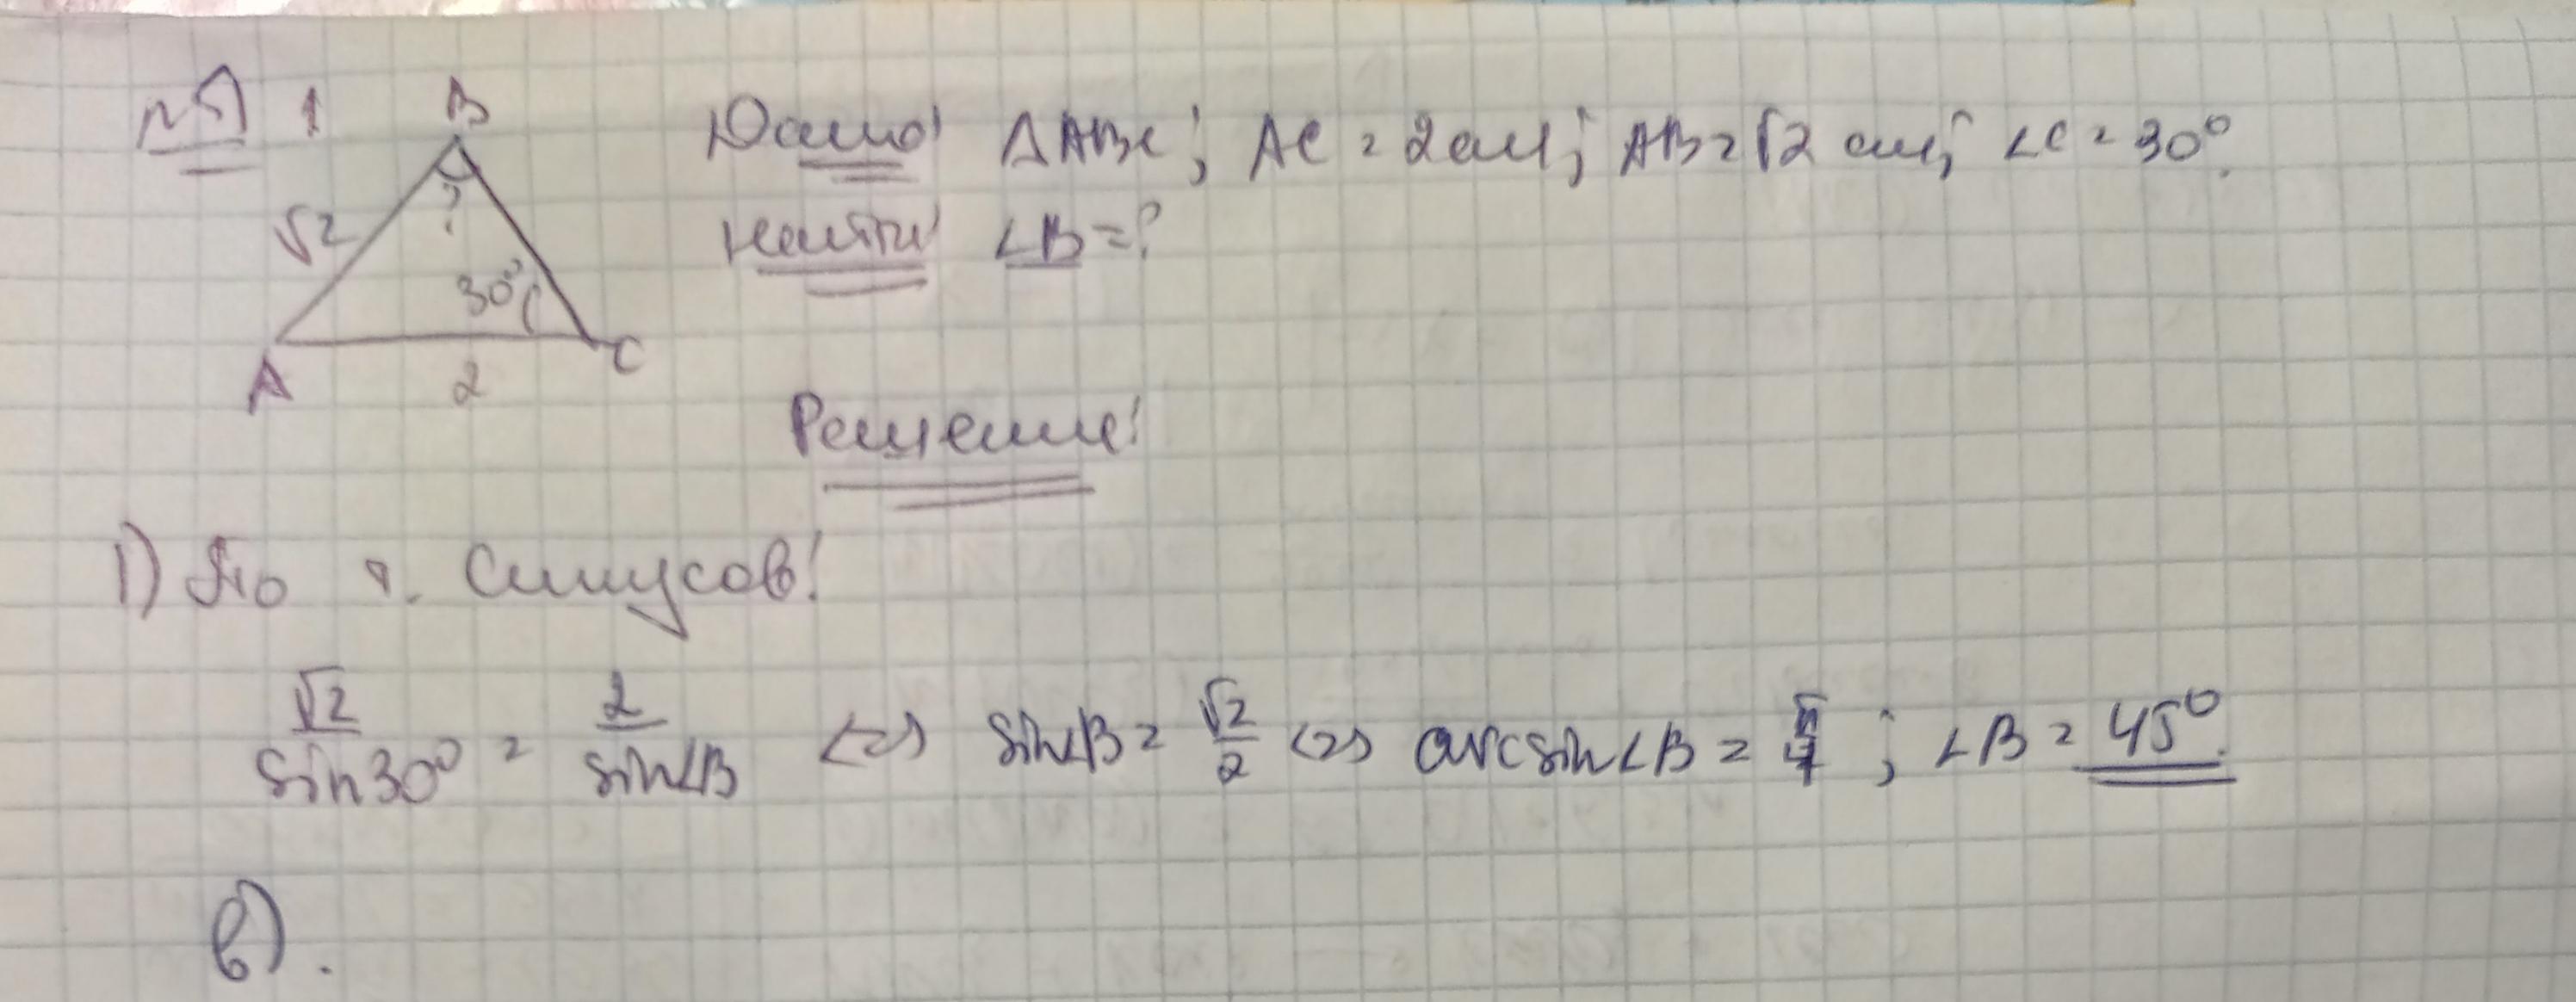 №5 1
B
Дано: ΔABC; AC = 2 см; AB = √2 см; ∠C = 30°.
√2
?
30°
Найти: ∠B = ?
A
2
C
Решение:
1) По т. Синусов:
√2/sin30° = 2/sin∠B <=> sin∠B = √2/2 <=> arcsin∠B = π/4; ∠B = 45°.
в).